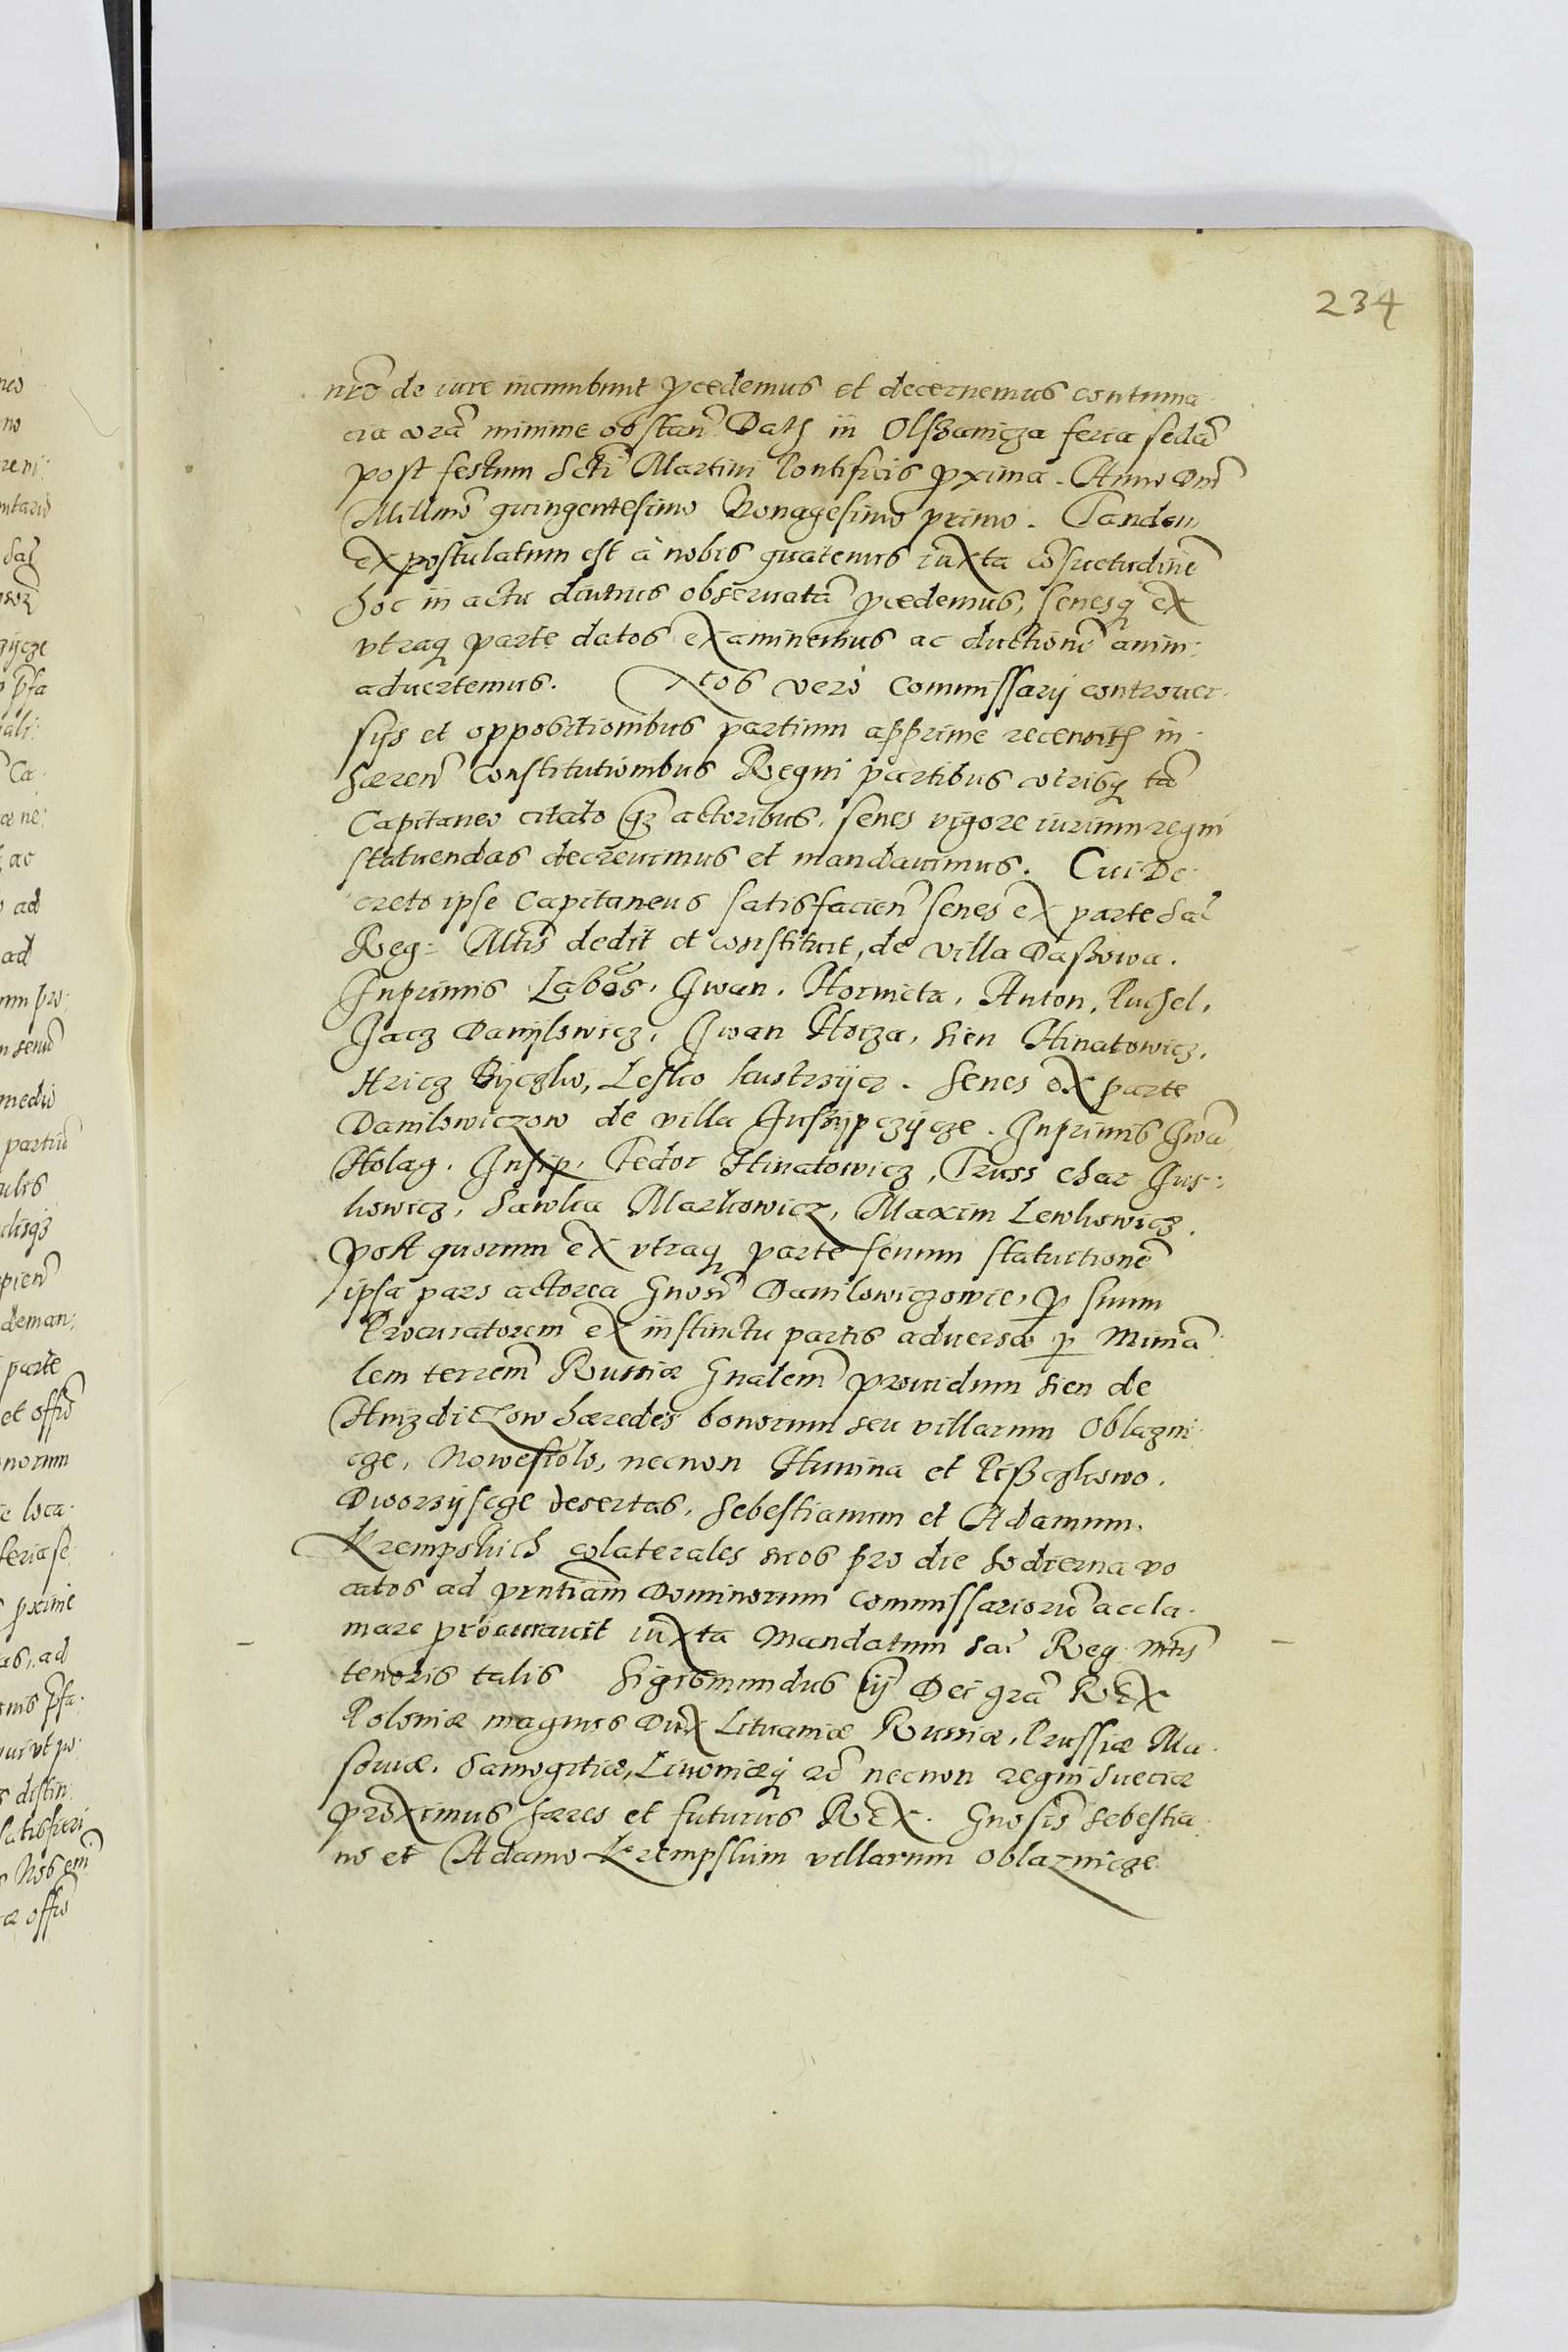 234
nro de iure incumbunt pcedemus et decernemus contuma
cia eorã minime obstan Datȝ in Olszanicza feria secdã
post festum Scti Martini Pontificis pxima. Anno Dni
Millmo quingentesimo Nonagesimo primo. Tandem
expostulatum est à nobis quatenus iuxta cõsuetudinẽ
hoc in actu diutius obseruatã pcedemus, senesq ex
vtraq parte datos examinemus ac ductionẽ anim
aduertemus. Nos verò Commissarij controuer
sijs et oppositionibus partium apprime recensitȝ in
hæren Constitutionibus Regni partibus vtrisq tã
Capitaneo citato qz actoribus, senes vigore iurium regni
statuendas decreuimus et mandauimus. Cui De
creto ipse Capitaneus satisfacien senes ex parte Sac
Reg Mtis dedit et constituit, de villa Daszowa.
Inprimis Labos, Iwan, Hormeta, Anton, Puchel,
Jacz Danijlowicz, Iwan Hoiza, Sien Hinatowicz,
Hricz Bijczko, Lesko kustrzijcz. Senes ex parte
Danilowiczow de villa Juszijpczijcze. Inprimis Iwã
Holag. Jusip, Fedor Hinatowicz, Truss Char Jus
kowicz, Sawka Markowicz, Maxim Lewkowicz.
post quorum ex vtraq parte senum statuitionẽ
ipsa pars actorea Gnosi Danilowiczowie, p suum
Procuratorem ex instinctu partis aduersæ p Minia
lem terrem Russiæ Gnalem prouidum Sien de
Hnizdiczow hæredes bonorum seu villarum Oblazni
cze, Nowesiolo, necnon Humina et Piszczkowo.
Dworzijscze desertas, Sebestianum et Adamum.
Krempskich colaterales suos pro die hodierna vo
catos ad pntiam Dominorum Commissariorũ accla
mare procurauit iuxta Mandatum Sac Reg Mtis
tenoris talis Sigismundus iij Dei grã REX
Poloniæ magnus Dux Lituaniæ Russiæ, Prussiæ Ma
souiæ, Samogitiæ, Liuoniæq rc necnon regni Sueciæ
proximus hæres et futurus REX. Gnosis Sebestia
no et Adamo Krempskim villarum Oblaznicze